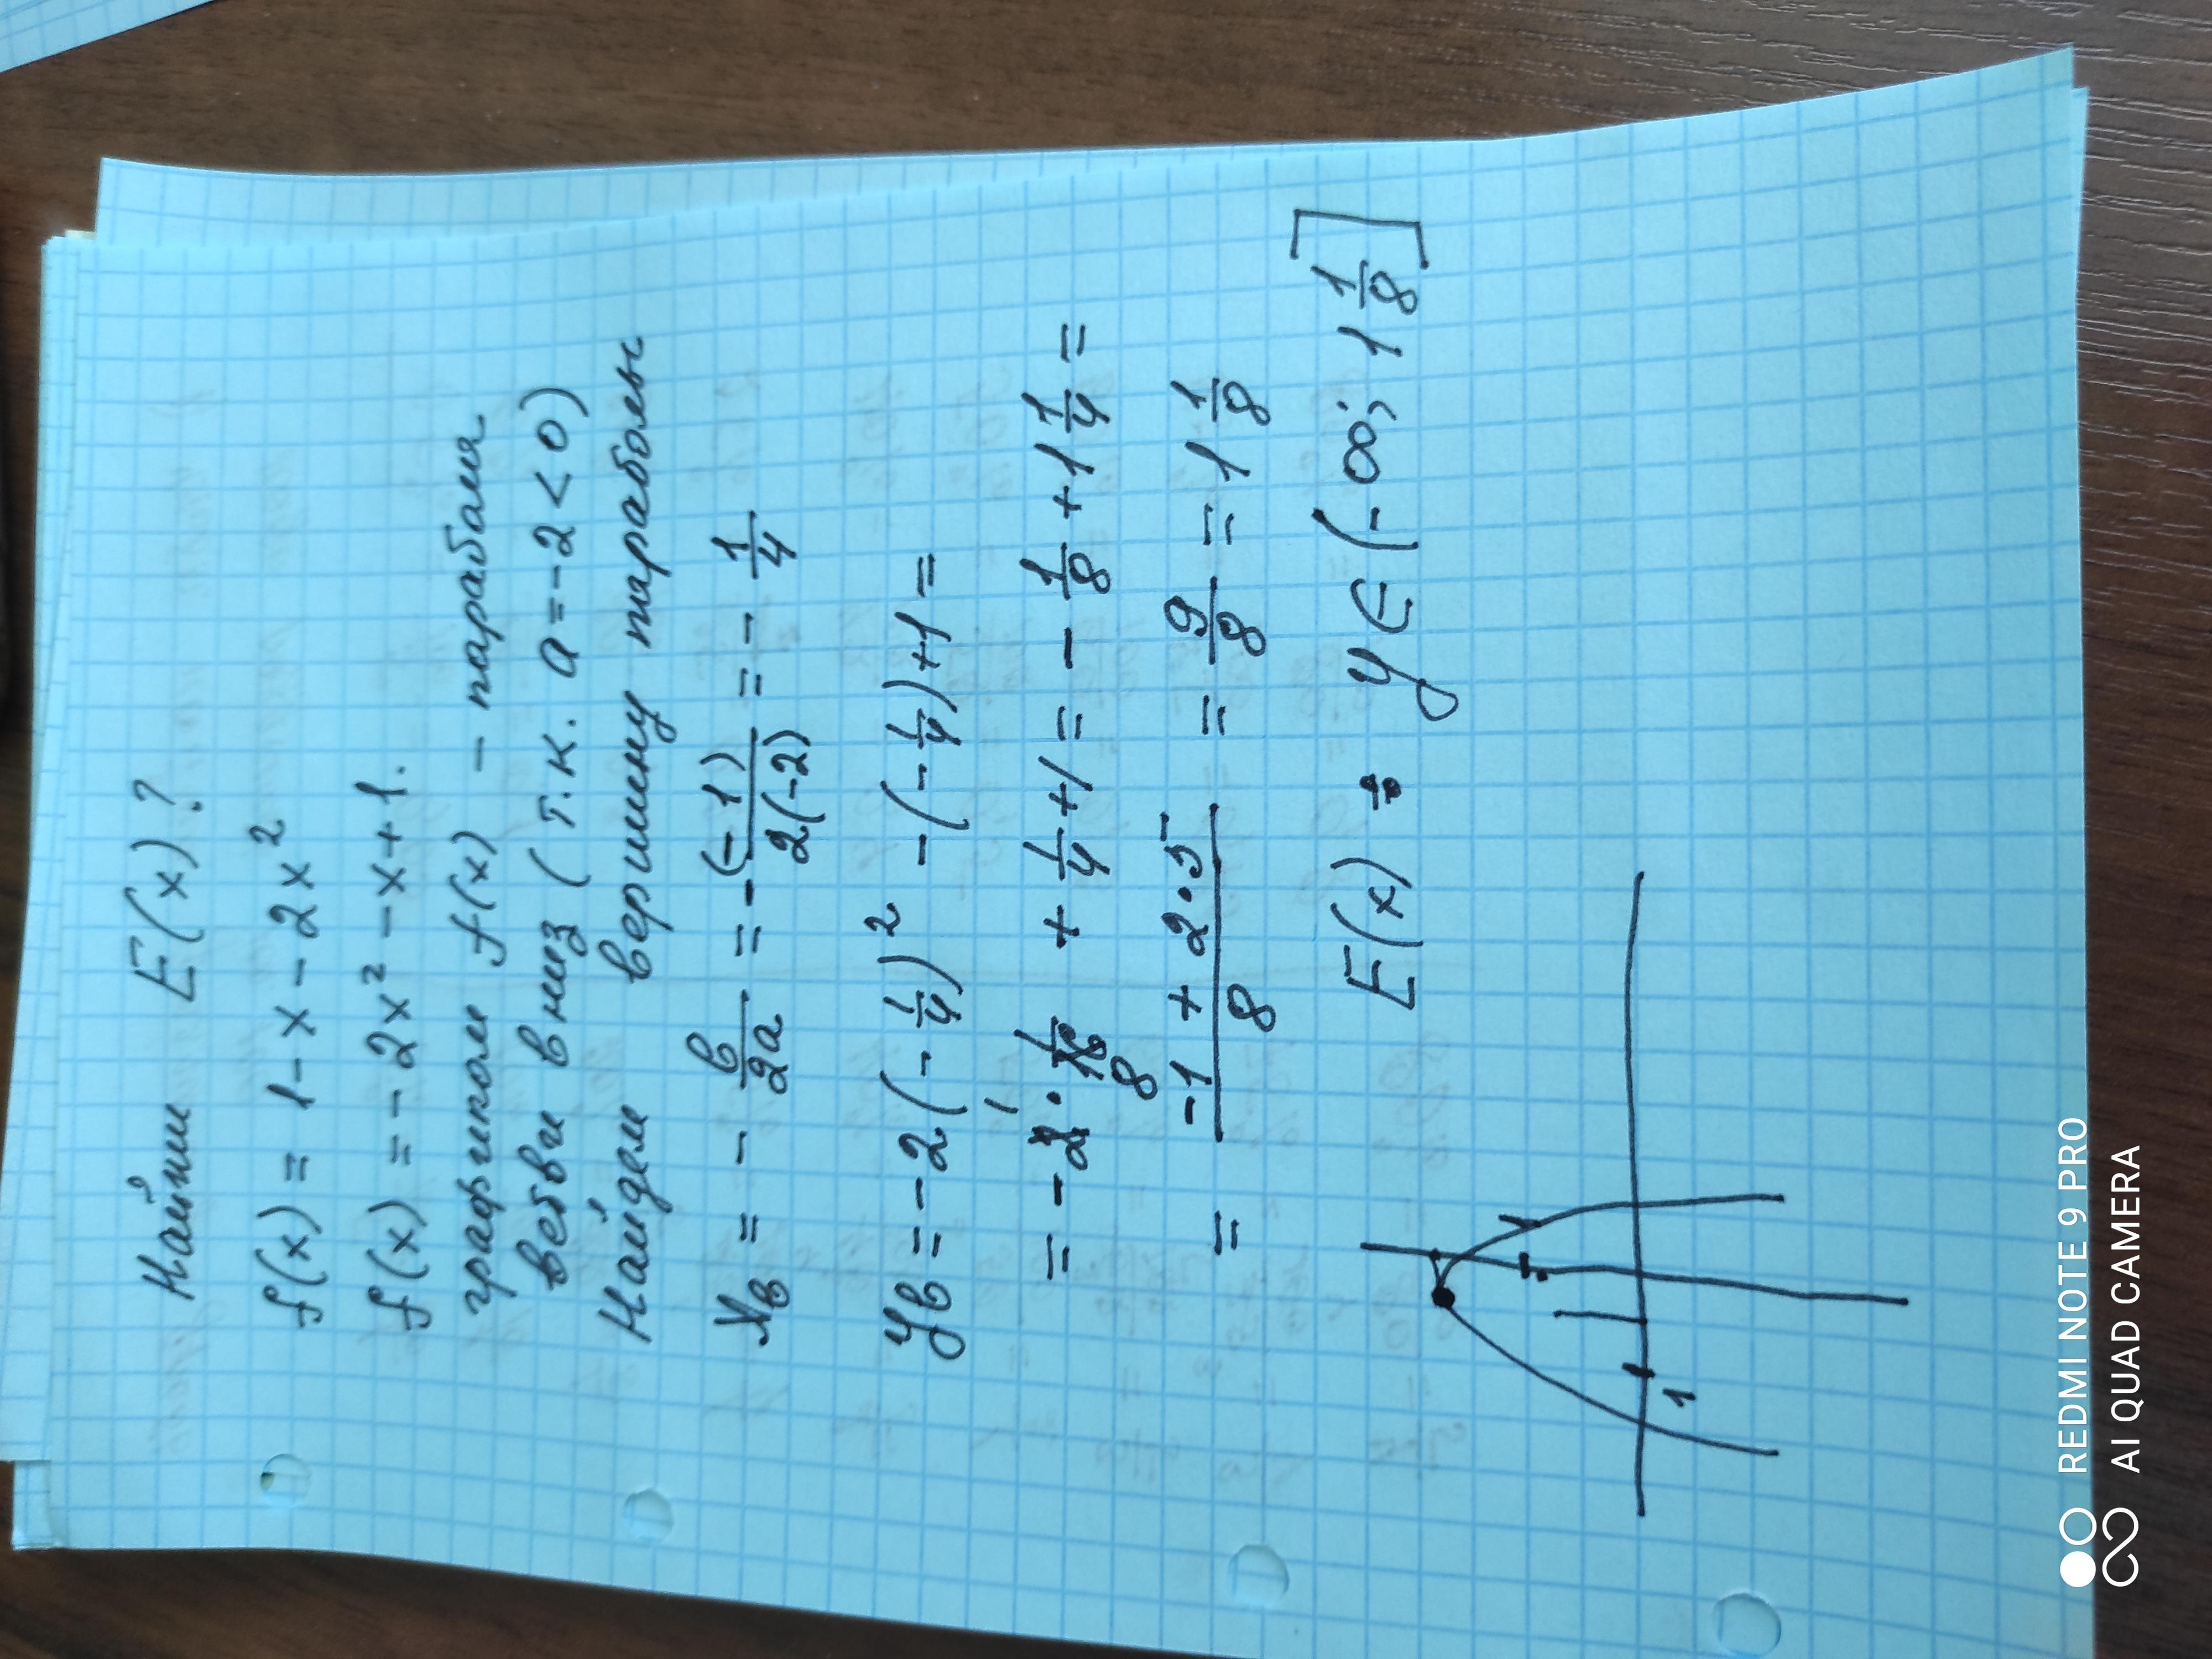 Найти E(x)?
f(x) = 1 - x - 2x²
f(x) = -2x² - x + 1.
графиком f(x) - парабола
ветви вниз (т.к. a = -2 < 0)
Найдем вершину параболы
xв = - в/2a = - (-1)/2(-2) = - 1/4
yв = -2(-1/4)² - (-1/4) + 1 =
= -2 · 1/16 + 1/4 + 1 = - 1/8 + 1 1/4 =
1
8
= -1 + 2·5 / 8 = 9/8 = 1 1/8
E(x) = y ∈ (-∞; 1 1/8]
1
1
REDMI NOTE 9 PRO
AI QUAD CAMERA